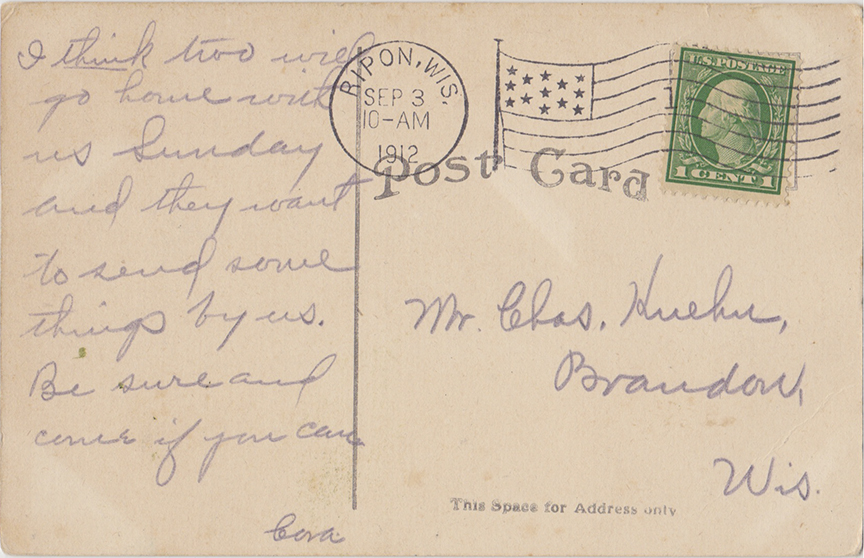 I think two will
go home with
us Sunday
and they want
to send some
things by us.
Be sure and
come if you can
Cora
RIPON, WIS.
SEP 3
10-AM
1912
U.S. POSTAGE
1 CENT 1
Post Card
Mr. Chas. Kuehn,
Brandon,
Wis.
This Space for Address only